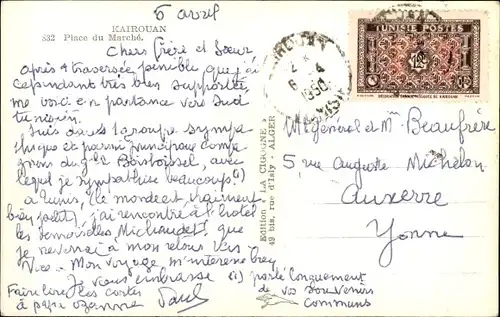 6 avril
KAIROUAN
832 Place du Marché.
Chers frère et Soeur
après 1 traversée pénible que j'ai
cependant très bien supportée,
me voici en partance vers Sud
tunisien.
Suis dans 1 groupe sympa
thique et parmi principaux compa
gnons du Gal
avec
lequel je sympathise beaucoup (1)
à Tunis, (le monde est vraiment
bien petit) j'ai rencontré à l'hôtel
les demoiselles Michaudet, que
je reverrai à mon retour vers
Nice. Mon voyage m'intéresse
Je vous embrasse
Faire lire les cartes
à papa
Paul
(1) parlé longuement
de vos souvenirs
communs
Edition "LA CIGOGNE"
49 bis, rue d'Isly - ALGER
KAIROUAN
6 - 4
1950
TUNISIE
TUNISIE POSTES
RF
Mr général et Me Beaufrère
5 rue Auguste Michelon
Auxerre
Yonne